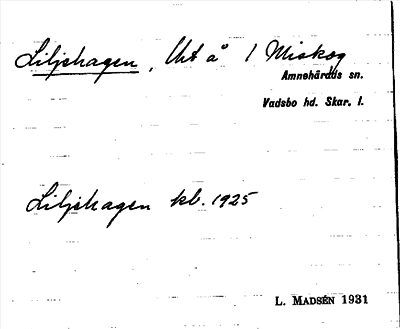 Liljehagen, Ut å 1 Miskog
Amnehärads sn.
Vadsbo hd. Skar. l.
Liljehagen kb. 1925
L. MADSÉN 1931